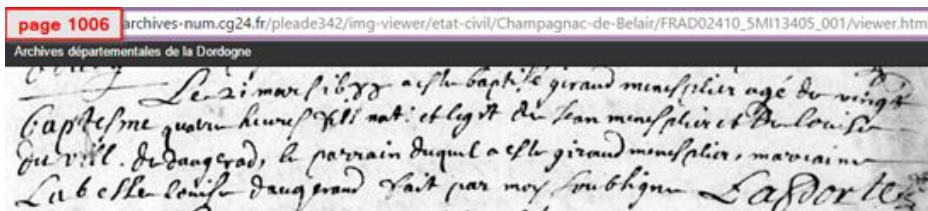 page 1006
archives-num.cg24.fr/pleade342/img-viewer/etat-civil/Champagnac-de-Belair/FRAD02410_5MI13405_001/viewer.htm
Archives départementales de la Dordogne
Le 21 mars a este baptisé giraud menesplier agé de vingt
Baptesme quatre heures fils nat: et legit de Jean menesplier et De louise
du vill. de daugerad, le parrain duquel a este giraud menesplier, marraine
Labesse louise daugeraud fait par moy soubsigne Laporte